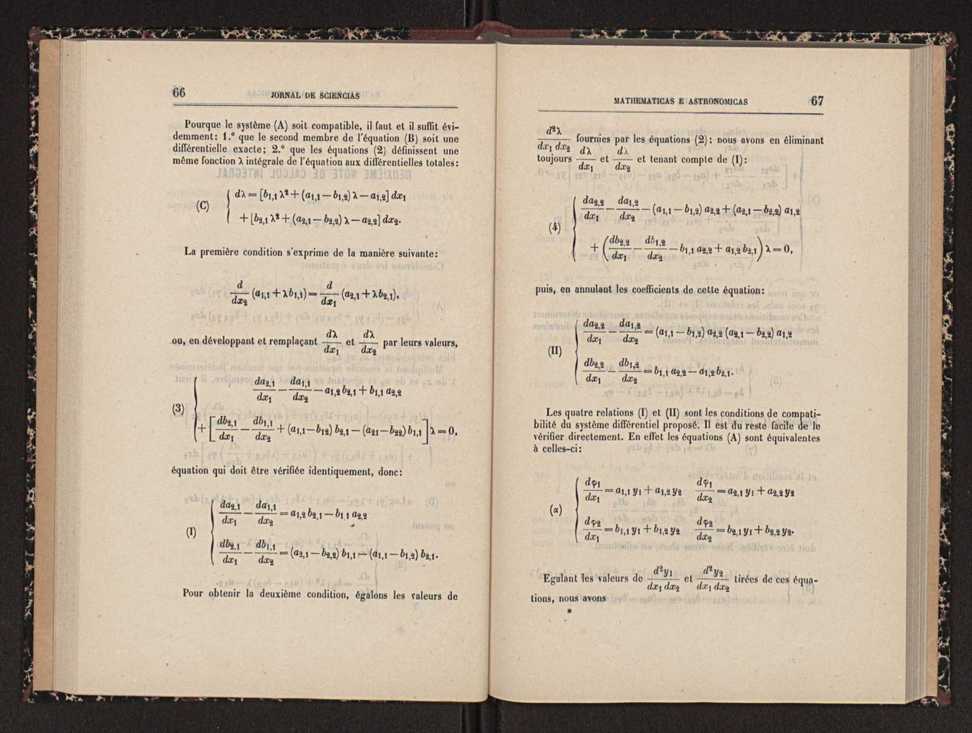 66
JORNAL DE SCIENCIAS
Pourque le système (A) soit compatible, il faut et il suffit évi-
demment: 1.° que le second membre de l'équation (B) soit une
différentielle exacte; 2.° que les équations (2) définissent une
même fonction λ intégrale de l'équation aux différentielles totales:
(C) { dλ = [b₁,₁ λ² + (a₁,₁ — b₁,₂) λ — a₁,₂] dx₁
+ [b₂,₁ λ² + (a₂,₁ — b₂,₂) λ — a₂,₂] dx₂.
La première condition s'exprime de la manière suivante:
d/dx₂ (a₁,₁ + λb₁,₁) = d/dx₁ (a₂,₁ + λb₂,₁),
ou, en développant et remplaçant dλ/dx₁ et dλ/dx₂ par leurs valeurs,
(3) { da₂,₁/dx₁ — da₁,₁/dx₂ — a₁,₂ b₂,₁ + b₁,₁ a₂,₂
+ [db₂,₁/dx₁ — db₁,₁/dx₂ + (a₁,₁ — b₁₂) b₂,₁ — (a₂₁ — b₂₂) b₁,₁] λ = 0,
équation qui doit être vérifiée identiquement, donc:
(I) { da₂,₁/dx₁ — da₁,₁/dx₂ = a₁,₂ b₂,₁ — b₁ ₁ a₂,₂
db₂,₁/dx₁ — db₁,₁/dx₂ = (a₂,₁ — b₂,₂) b₁,₁ — (a₁,₁ — b₁,₂) b₂,₁.
Pour obtenir la deuxième condition, égalons les valeurs de
MATHEMATICAS E ASTRONOMICAS
67
d²λ/dx₁ dx₂ fournies par les équations (2): nous avons en éliminant
toujours dλ/dx₁ et dλ/dx₂ et tenant compte de (I):
(4) { da₂,₂/dx₁ — da₁,₂/dx₂ — (a₁,₁ — b₁,₂) a₂,₂ + (a₂,₁ — b₂,₂) a₁,₂
+ (db₂,₂/dx₁ — db₁,₂/dx₂ — b₁,₁ a₂,₂ + a₁,₂ b₂,₁) λ = 0,
puis, en annulant les coefficients de cette équation:
(II) { da₂,₂/dx₁ — da₁,₂/dx₂ = (a₁,₁ — b₁,₂) a₂,₂ (a₂,₁ — b₂,₂) a₁,₂
db₂,₂/dx₁ — db₁,₂/dx₂ = b₁,₁ a₂,₂ — a₁,₂ b₂,₁.
Les quatre relations (I) et (II) sont les conditions de compati-
bilité du système différentiel proposé. Il est du reste facile de le
vérifier directement. En effet les équations (A) sont équivalentes
à celles-ci:
(α) { dφ₁/dx₁ = a₁,₁ y₁ + a₁,₂ y₂ dφ₁/dx₂ = a₂,₁ y₁ + a₂,₂ y₂
dφ₂/dx₁ = b₁,₁ y₁ + b₁,₂ y₂ dφ₂/dx₂ = b₂,₁ y₁ + b₂,₂ y₂.
Egalant les valeurs de d²y₁/dx₁ dx₂ et d²y₂/dx₁ dx₂ tirées de ces équa-
tions, nous avons
*